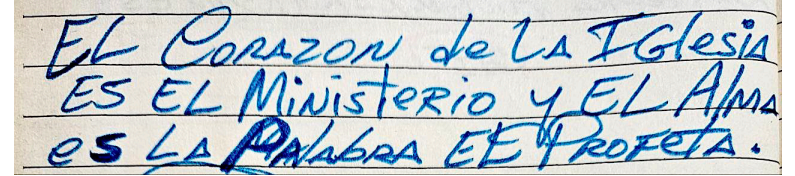 EL CORAZON de LA IGlesiA
ES EL MiNisteRiO y EL AlMA
es LA PALAbRA EL PROFetA.